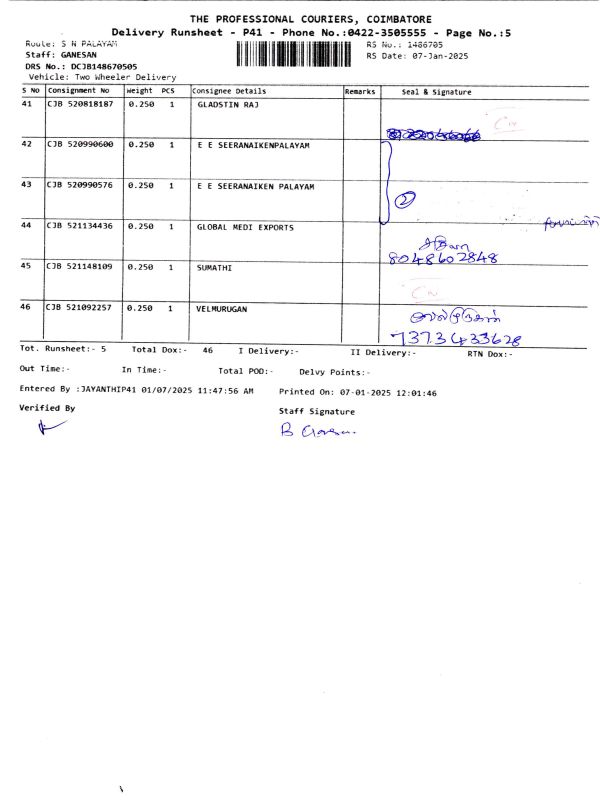 THE PROFESSIONAL COURIERS, COIMBATORE
Delivery Runsheet - P41 - Phone No.:0422-3505555 - Page No.:5
Route: S N PALAYAM
RS No.: 1486705
Staff: GANESAN
RS Date: 07-Jan-2025
DRS No.: DCJB148670505
Vehicle: Two Wheeler Delivery
S No Consignment No Weight PCS Consignee Details Remarks Seal & Signature
41 CJB 520818187 0.250 1 GLADSTIN RAJ
42 CJB 520990600 0.250 1 E E SEERANAIKENPALAYAM
43 CJB 520990576 0.250 1 E E SEERANAIKEN PALAYAM
2
44 CJB 521134436 0.250 1 GLOBAL MEDI EXPORTS
8048602848
45 CJB 521148109 0.250 1 SUMATHI
46 CJB 521092257 0.250 1 VELMURUGAN
வேல்முருகன்
7373433628
Tot. Runsheet:- 5 Total Dox:- 46 I Delivery:- II Delivery:- RTN Dox:-
Out Time:- In Time:- Total POD:- Delvy Points:-
Entered By :JAYANTHIP41 01/07/2025 11:47:56 AM Printed On: 07-01-2025 12:01:46
Verified By
Staff Signature